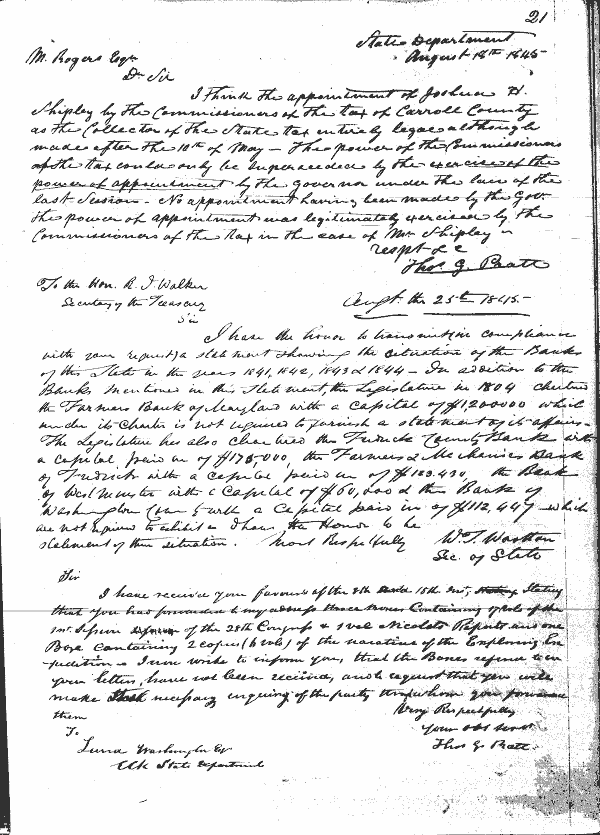 21
State Department
August 18th 1845-
M. Rogers Esqr
Dr Sir
I think the appointment of Joshua H.
Shipley by the Commissioners of the tax of Carroll County
as the Collector of the State tax entirely legal although
made after the 10th of May - The power of the Commissioners
of the tax could only be superseeded by the exercise of the
power of appointment by the governor under the law of the
last Session - No appointment having been made by the Govr
the power of appointment was legitimately exercised by the
Commissioners of the tax in the case of Mr Shipley
respt &c
Thos G. Pratt
To the Hon. R. J. Walker
Secretary of the Treasury
Augt the 25th 1845-
Sir
I have the honor to transmit (in compliance
with your request) a statement showing the situation of the Banks
of this State in the years 1841, 1842, 1843 & 1844 - In addition to the
Banks mentioned in this statement, the Legislature in 1804 chartered
the Farmers Bank of Maryland with a capital of $1,200000 which
under its Charter is not required to furnish a statement of its affairs-
The Legislature has also chartered the Fredrick County Bank with
a capital paid in of $175,000, the Farmers & Mechanics Bank
of Fredrick with a capital paid in of the Bank
of Westminster with a Capital of $60,000 & the Bank of
Washington County with a Capital paid in of $112,447 which
are not required to exhibit a I have the Honor to be
statement of their situation. Most Respelfully
W. T. Wootton
Sec. of State
Sir
I have received your favour of the 8th 15th Inst, Stating
that you had forwarded to my address three Boxes Containing of the
1st Session of the 28th Congress & 1 vol Nicolets Reports and one
Box containing 2 copies (6 vols) of the narrative of the Exploring Ex
pedition - I now write to inform you, that the Boxes refered to in
your letter, have not been received, and request that you will
make necessary enquiry of the party through whom you forwarded
them
Very Respectfully
your obt servt
Thos G Pratt
To
Lund Washington Esq
Clk State Department